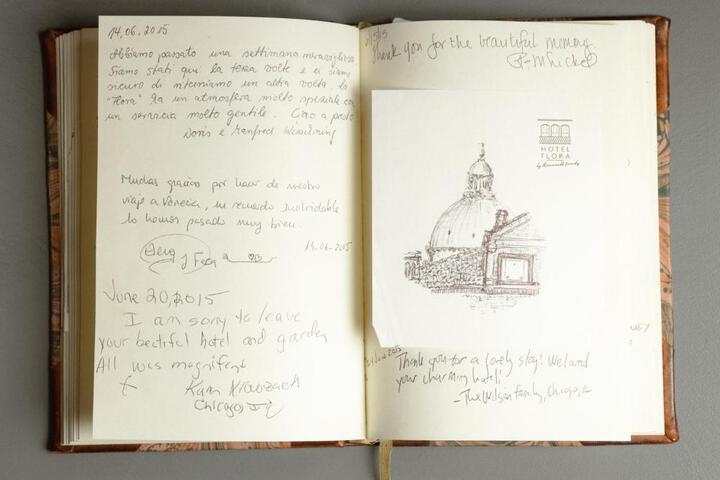 14.06.2015
Abbiamo passato una settimana meravigliosa
Siamo stati qui la terza volta e ci siamo
sicuro di ritorniamo un altra volta. la
"Flora" ha un atmosfera molto speciale con
un servicia molto gentile. Ciao a presto
Doris e Manfred
Muchas gracias por hacer de nuestro
viaje a Venecia, un recuerdo inolvidable
lo hemos pasado muy bien.
14-06-2015
June 20, 2015
I am sorry to leave
your beutiful hotel and garden
All was magnifent
Karen
Chicago
Thank you for the beautiful memory.
HOTEL
FLORA
June 2015
Thank you for a lovely stay! We loved
your charming hotel!
- The Wilson family, Chicago, IL